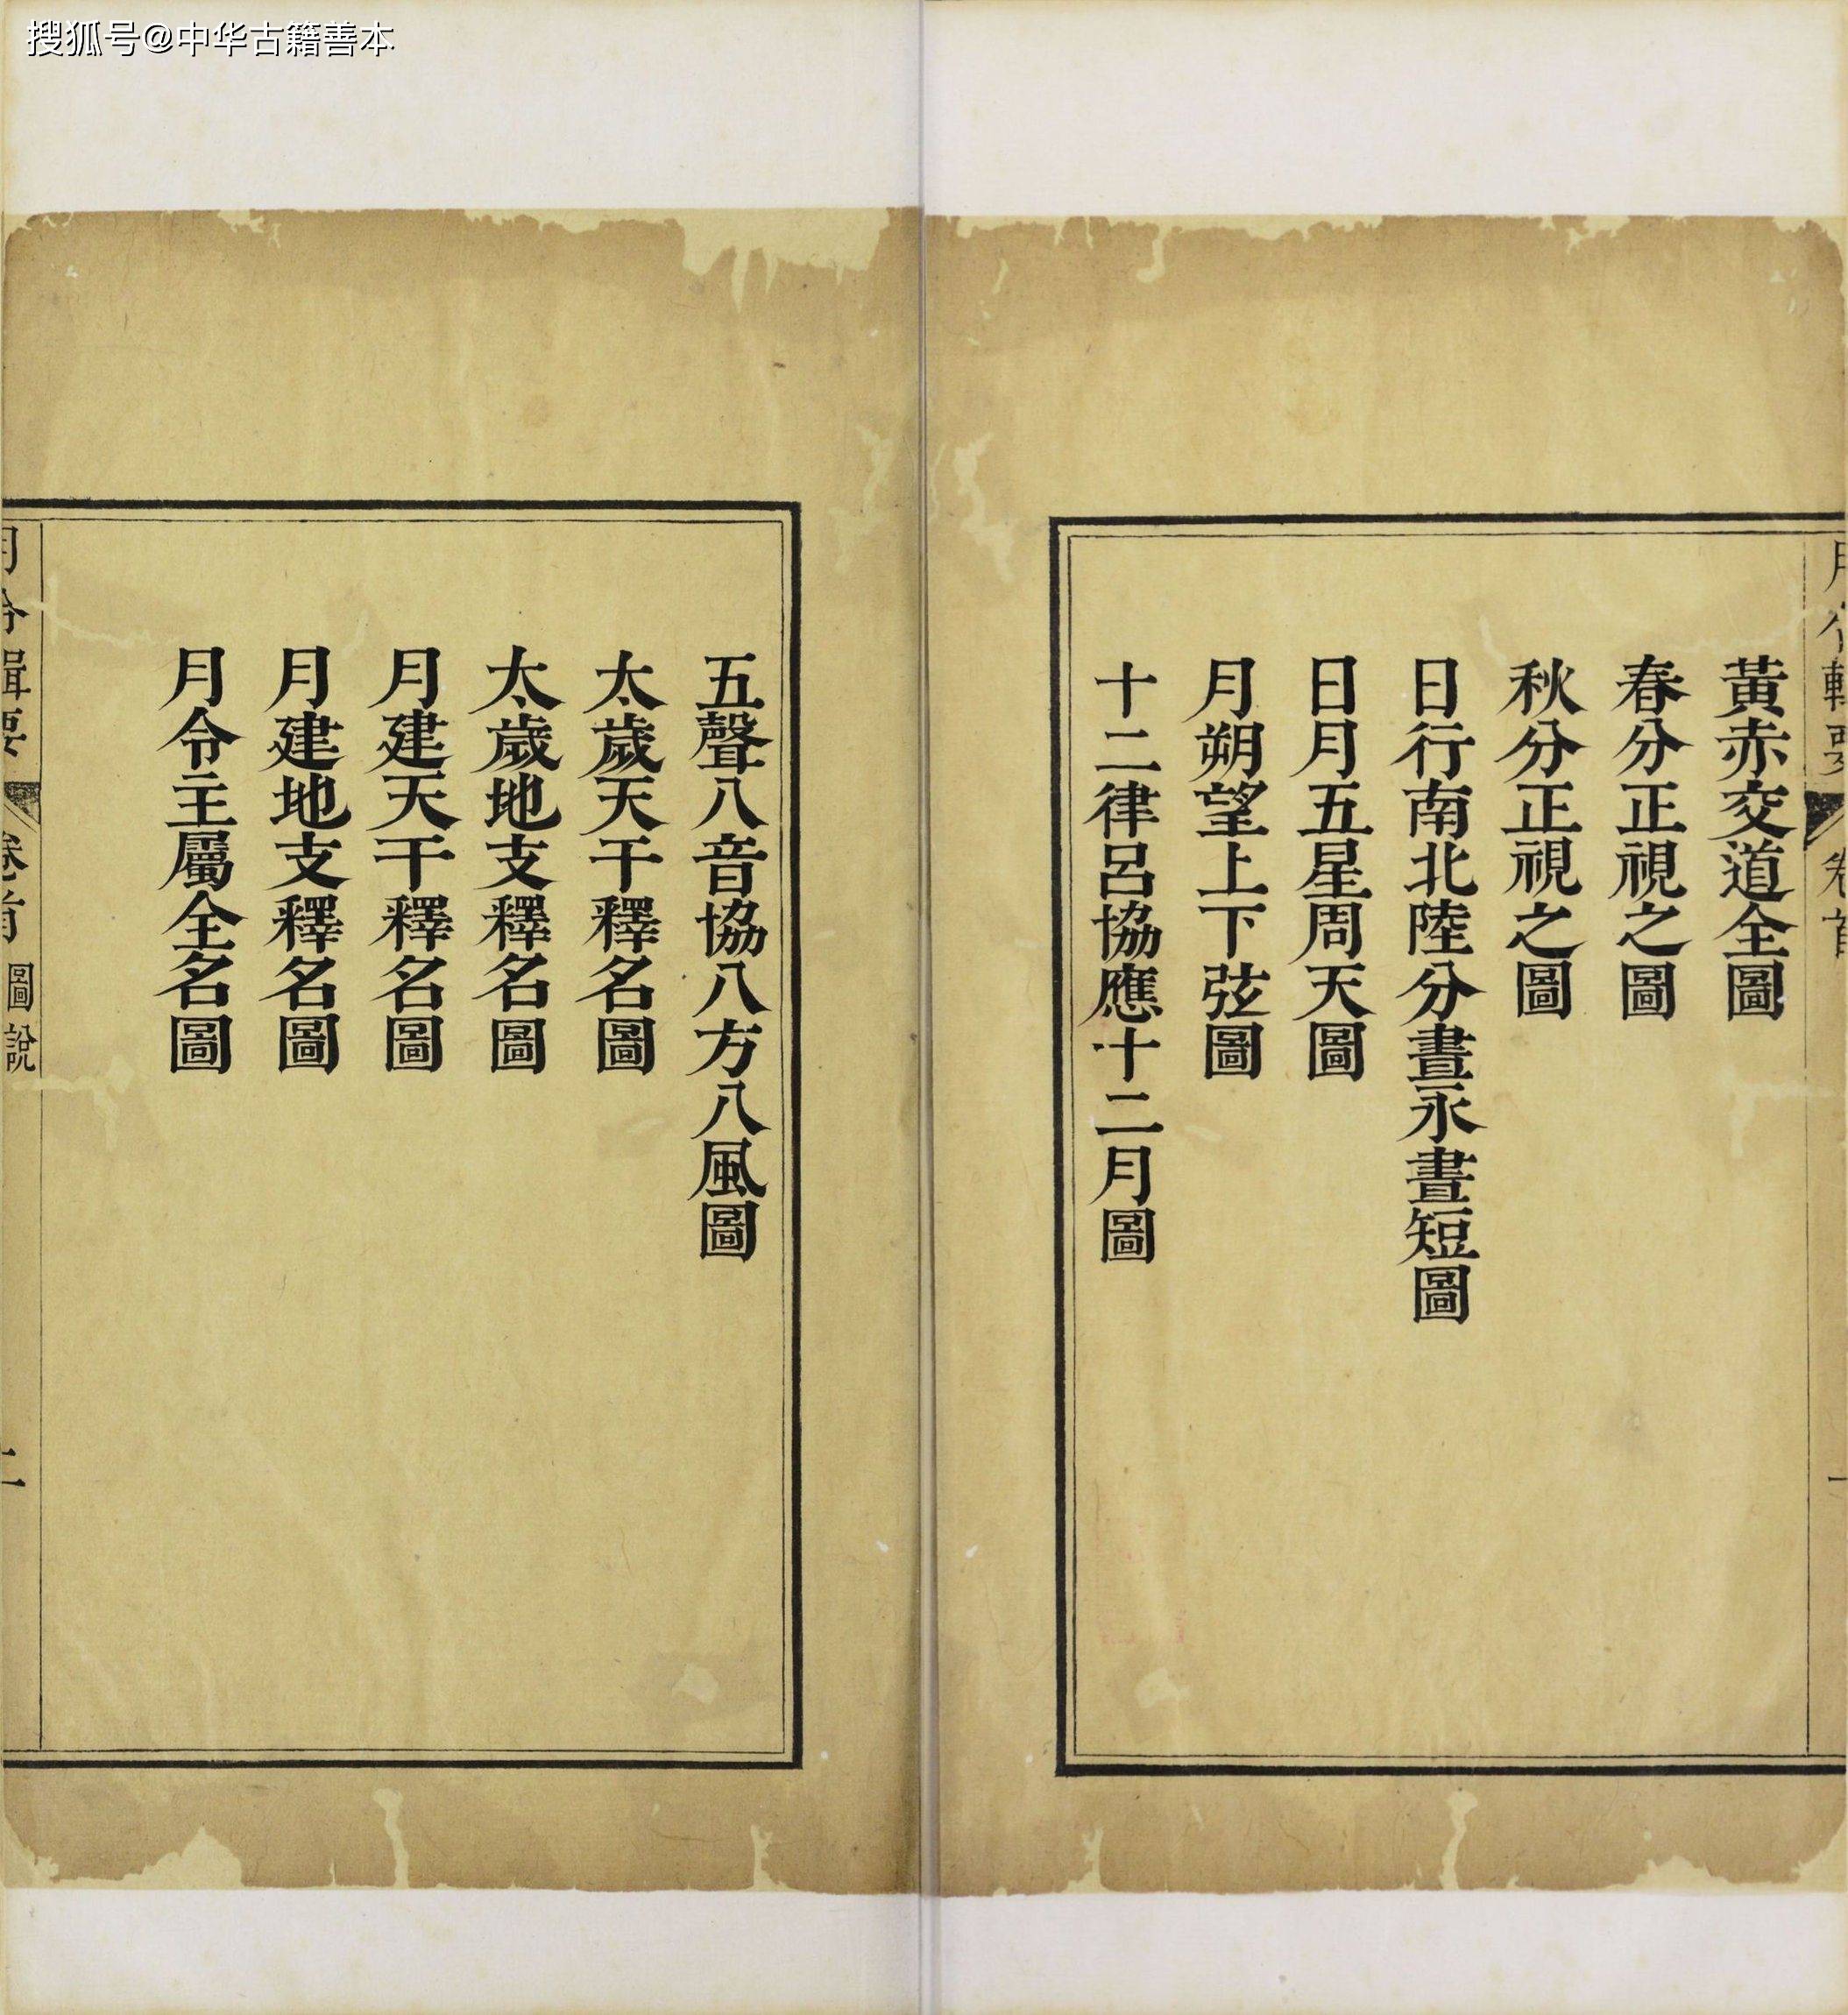 搜狐号@中华古籍善本
黃赤交道全圖
春分正視之圖
秋分正視之圖
日行南北陸分晝永晝短圖
日月五星周天圖
月朔望上下弦圖
十二律呂協應十二月圖
五聲八音協八方八風圖
太歲天干釋名圖
太歲地支釋名圖
月建天干釋名圖
月建地支釋名圖
月令主屬全名圖
月令輯要 卷首 圖說 二